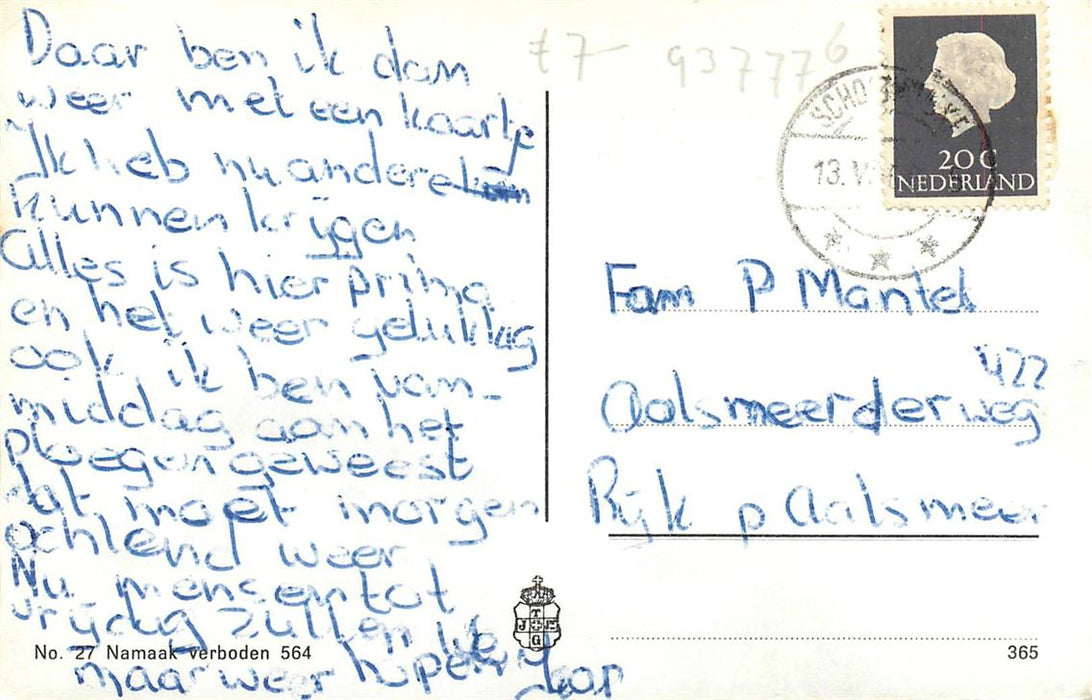 Daar ben ik dan
weer met een kaartje
Ik heb nu andere
kunnen krijgen
alles is hier prima
en het weer gelukkig
ook ik ben van-
middag aan het
ploegen geweest
dat moet morgen
ochtend weer
Nu mensen tot
vrijdag zullen we
maar weer hopen Jaap
No. 27 Namaak verboden 564
£7- 937776
20 C
NEDERLAND
13.V
Fam P Mantel
422
Aalsmeerderweg
Rijk p Aalsmeer
T
J E
G
365